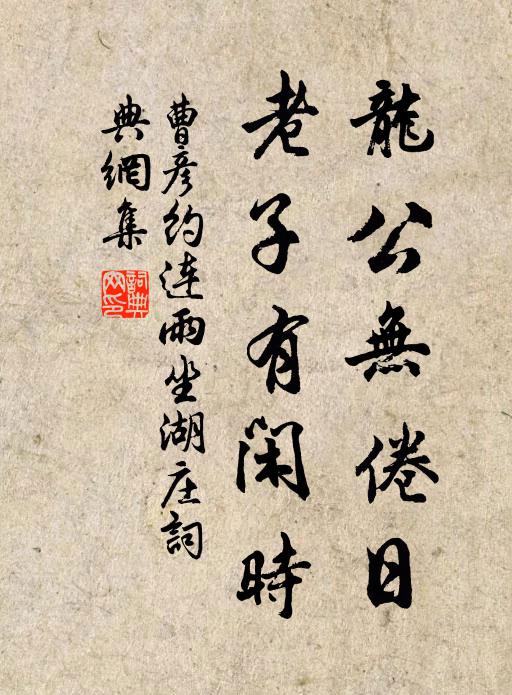 龍公無倦日
老子有閑時
曹彥約連雨坐湖庄詞
典網集
詞典
網印